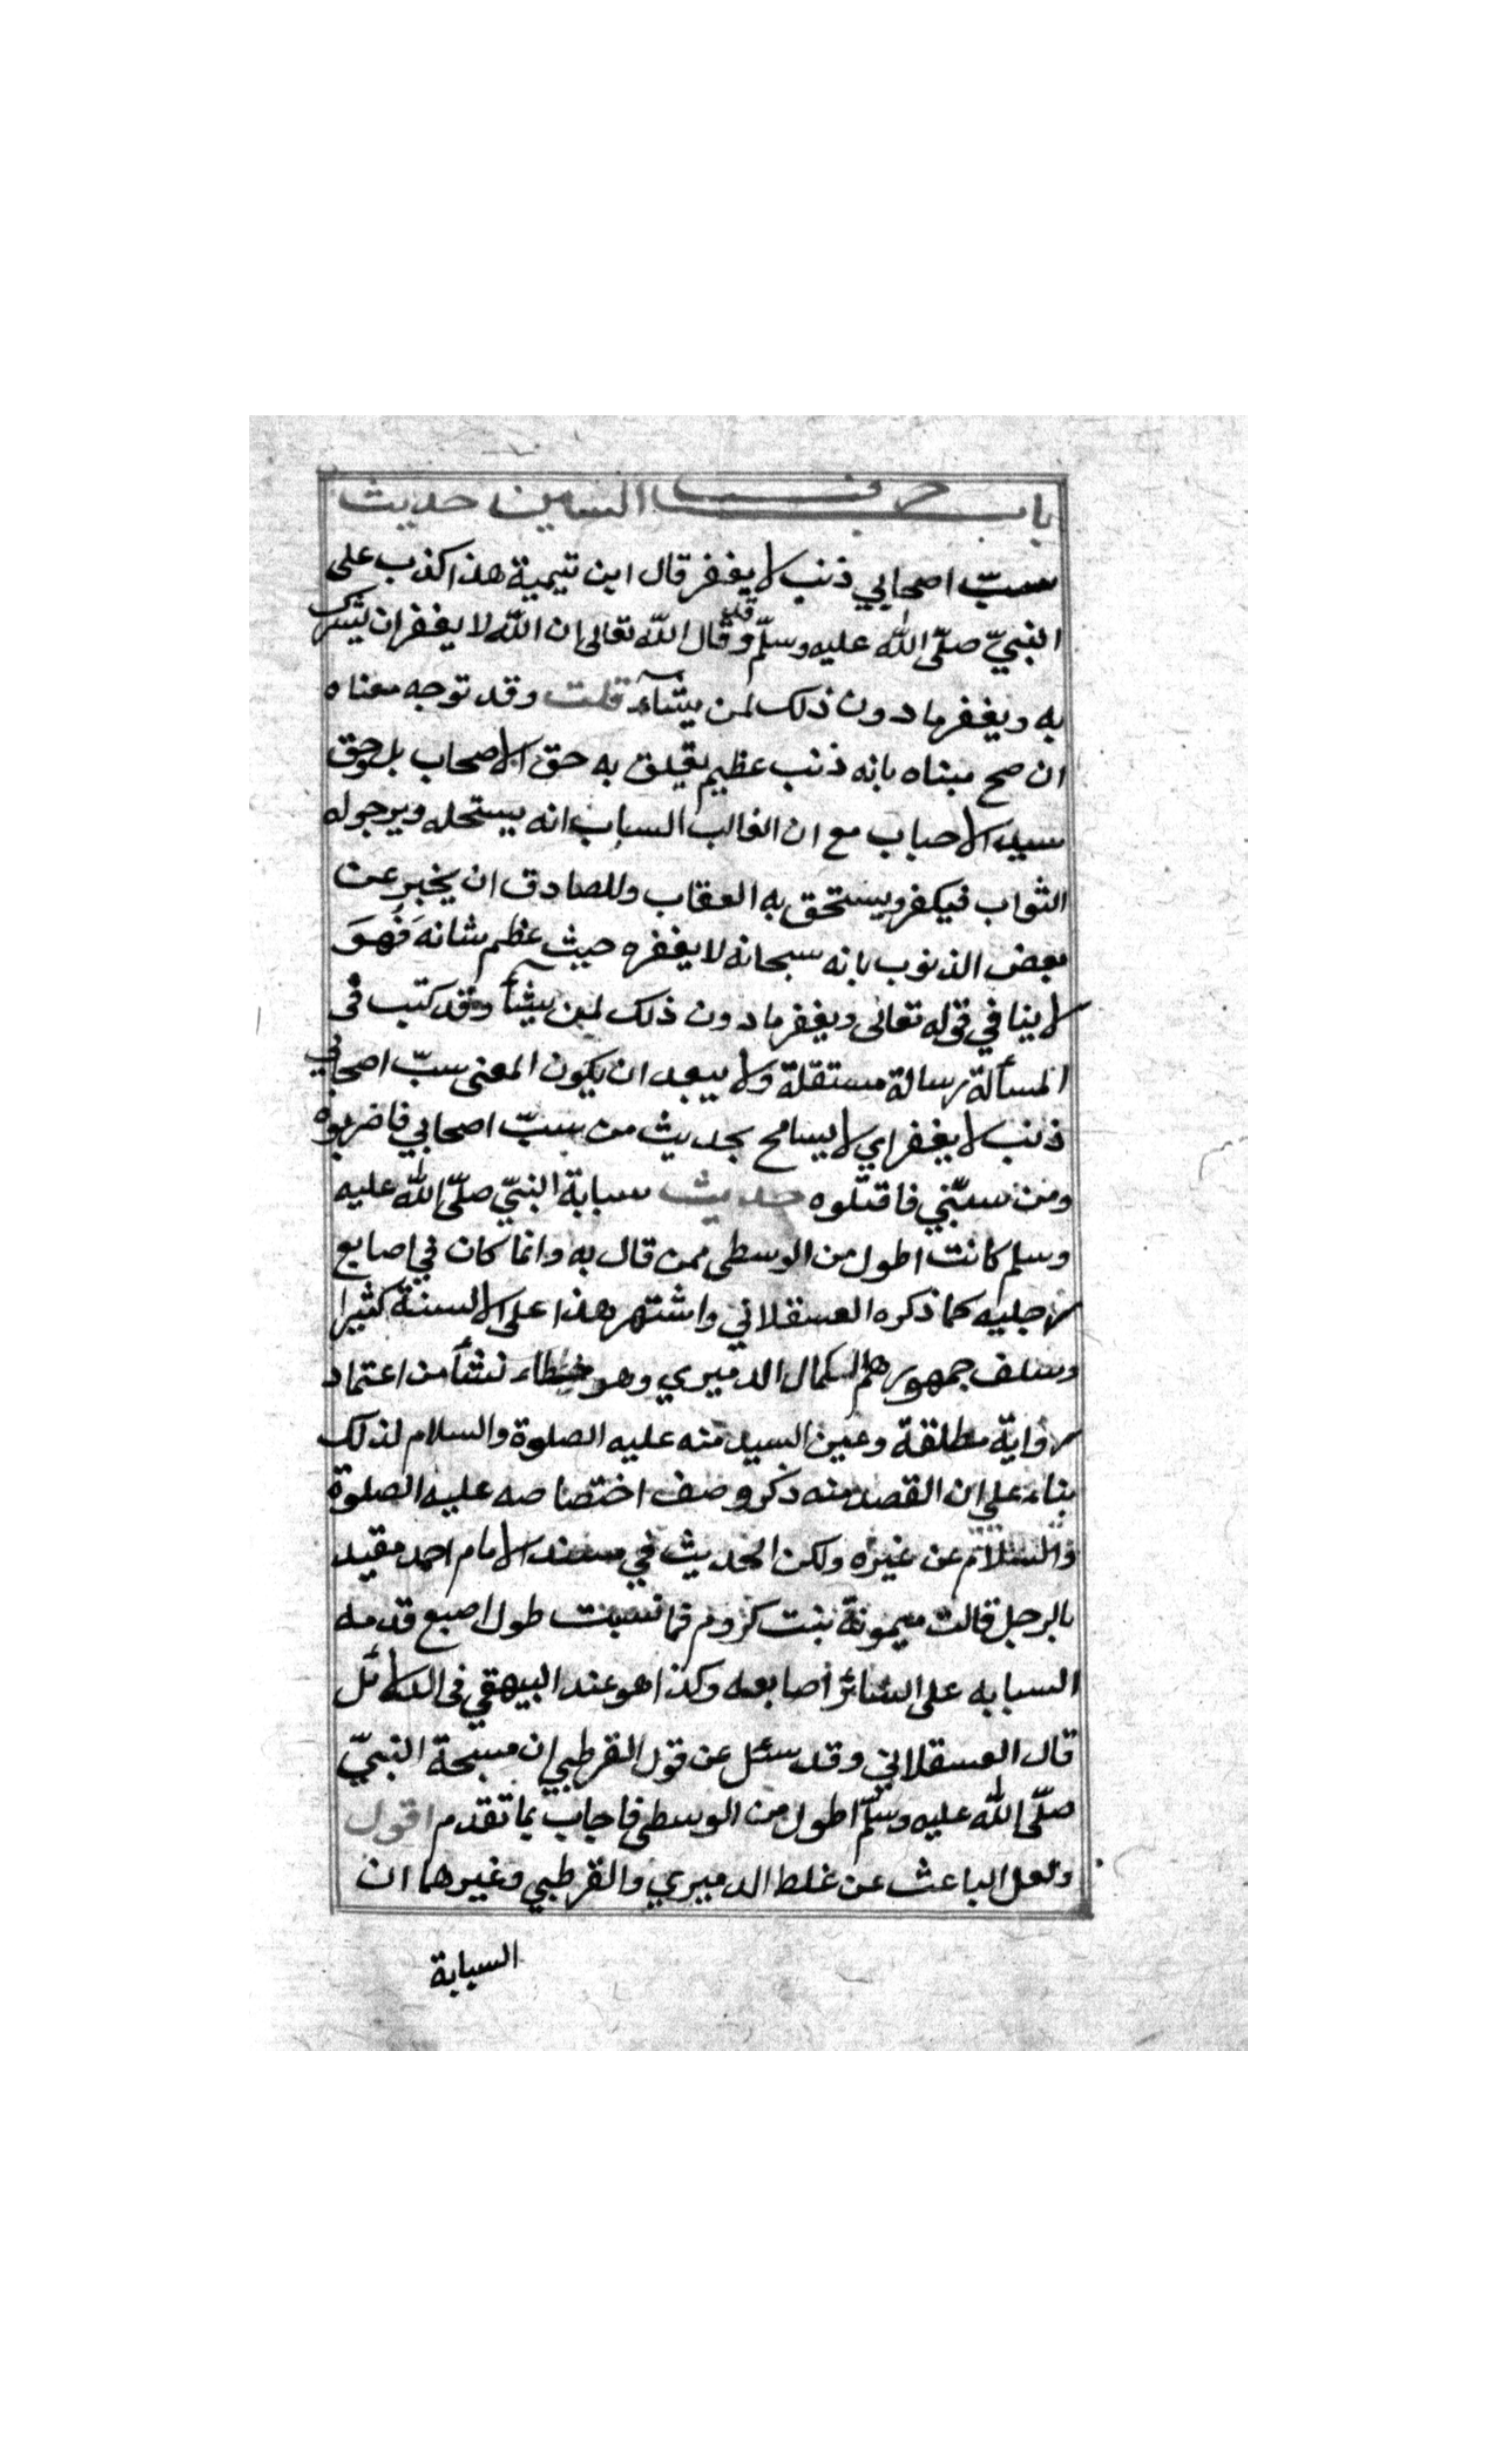 باب حرف السين حديث
سبّ اصحابي ذنب لا يغفر قال ابن تيمية هذا كذب على
النبيّ صلّى الله عليه وسلّم وقد قال الله تعالى ان الله لا يغفر ان يشرك
به ويغفر ما دون ذلك لمن يشآء قلت وقد توجه معناه
ان صح مبناه بانه ذنب عظيم يتعلق به حق الاصحاب بل وحق
سيد الاحباب مع ان الغالب السباب انه يستحله ويرجو له
الثواب فيكفر ويستحق به العقاب وللصادق ان يخبر عن
بعض الذنوب بانه سبحانه لا يغفره حيث عظم شانه فَهوَ
لا ينافي قوله تعالى ويغفر ما دون ذلك لمن يشأ وقد كتب فى
المسألة رسالة مستقلة ولا يبعد ان يكون المعنى سبّ اصحابي
ذنب لا يغفر اي لا يسامح بحديث من سبّ اصحابي فاضربوه
ومن سبّني فاقتلوه حديث سبابة النبيّ صلّى الله عليه
وسلم كانت اطول من الوسطى ممن قال به وانما كان في اصابع
رجليه كما ذكره العسقلاني واشتهر هذا على الالسنة كثيرا
وسلف جمهورهم الكمال الدميري وهو خطاء نشأ من اعتماد
رواية مطلقة وعين السيد منه عليه الصلوة والسلام لذلك
بناء على ان القصد منه ذكر وصف اختصاصه عليه الصلوة
والسلام عن غيره ولكن الحديث في مسند الامام احمد مقيد
بالرجل قالت ميمونة بنت كردم فما نسيت طول اصبع قدمه
السبابه على السائر اصابعه وكذا هو عند البيهقي فى الدلائل
قال العسقلاني وقد سئل عن قول القرطبي ان مسبحة النبيّ
صلّى الله عليه وسلّم اطول من الوسطى فاجاب بما تقدم اقول
ولعل الباعث عن غلط الدميري والقرطبي وغيرهما ان
السبابة